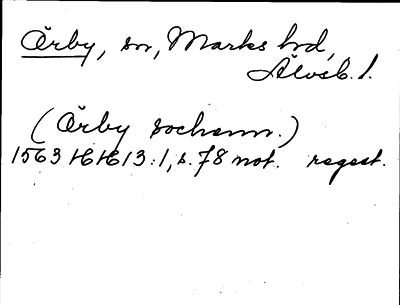 Örby, sn, Marks hd,
Älvsb. l.
(Örby sochenn.)
1563 HH 13:1, s. 78 not. regest.